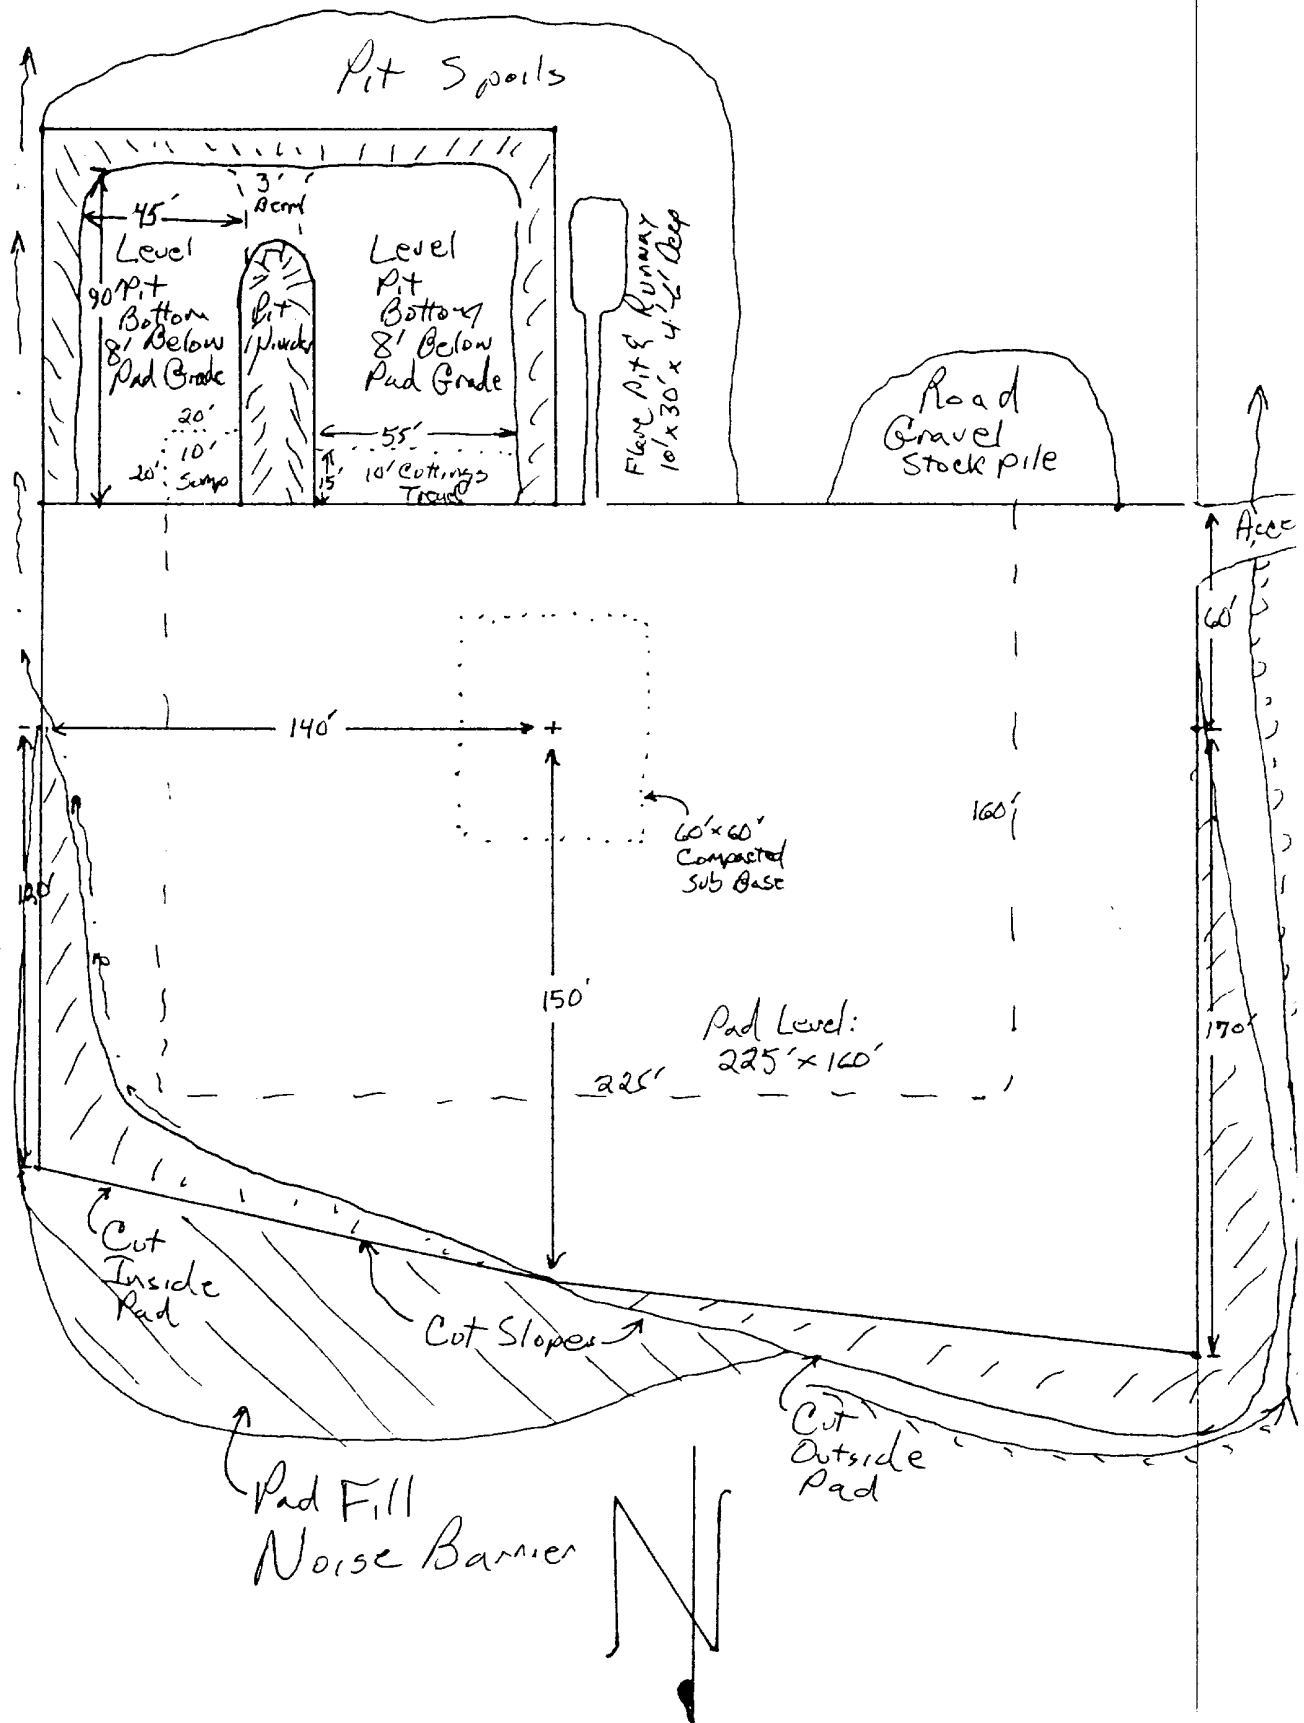 Pit Spoils
3'
Berm
45'
Level
Pit
Bottom
8' Below
Pad Grade
90'
Pit
Level
Pit
Bottom
8' Below
Pad Grade
20'
20'
10'
Sump
55'
15'
10' Cuttings
Flare Pit & Runway
10' x 30' x 4'-6' Deep
Road
Gravel
Stock pile
60'
140'
60' x 60'
Compacted
Sub Base
160'
120'
150'
Pad Level:
225' x 160'
225'
170'
Cut
Inside
Pad
Cut Slopes
Cut
Outside
Pad
Pad Fill
Noise Barrier
N